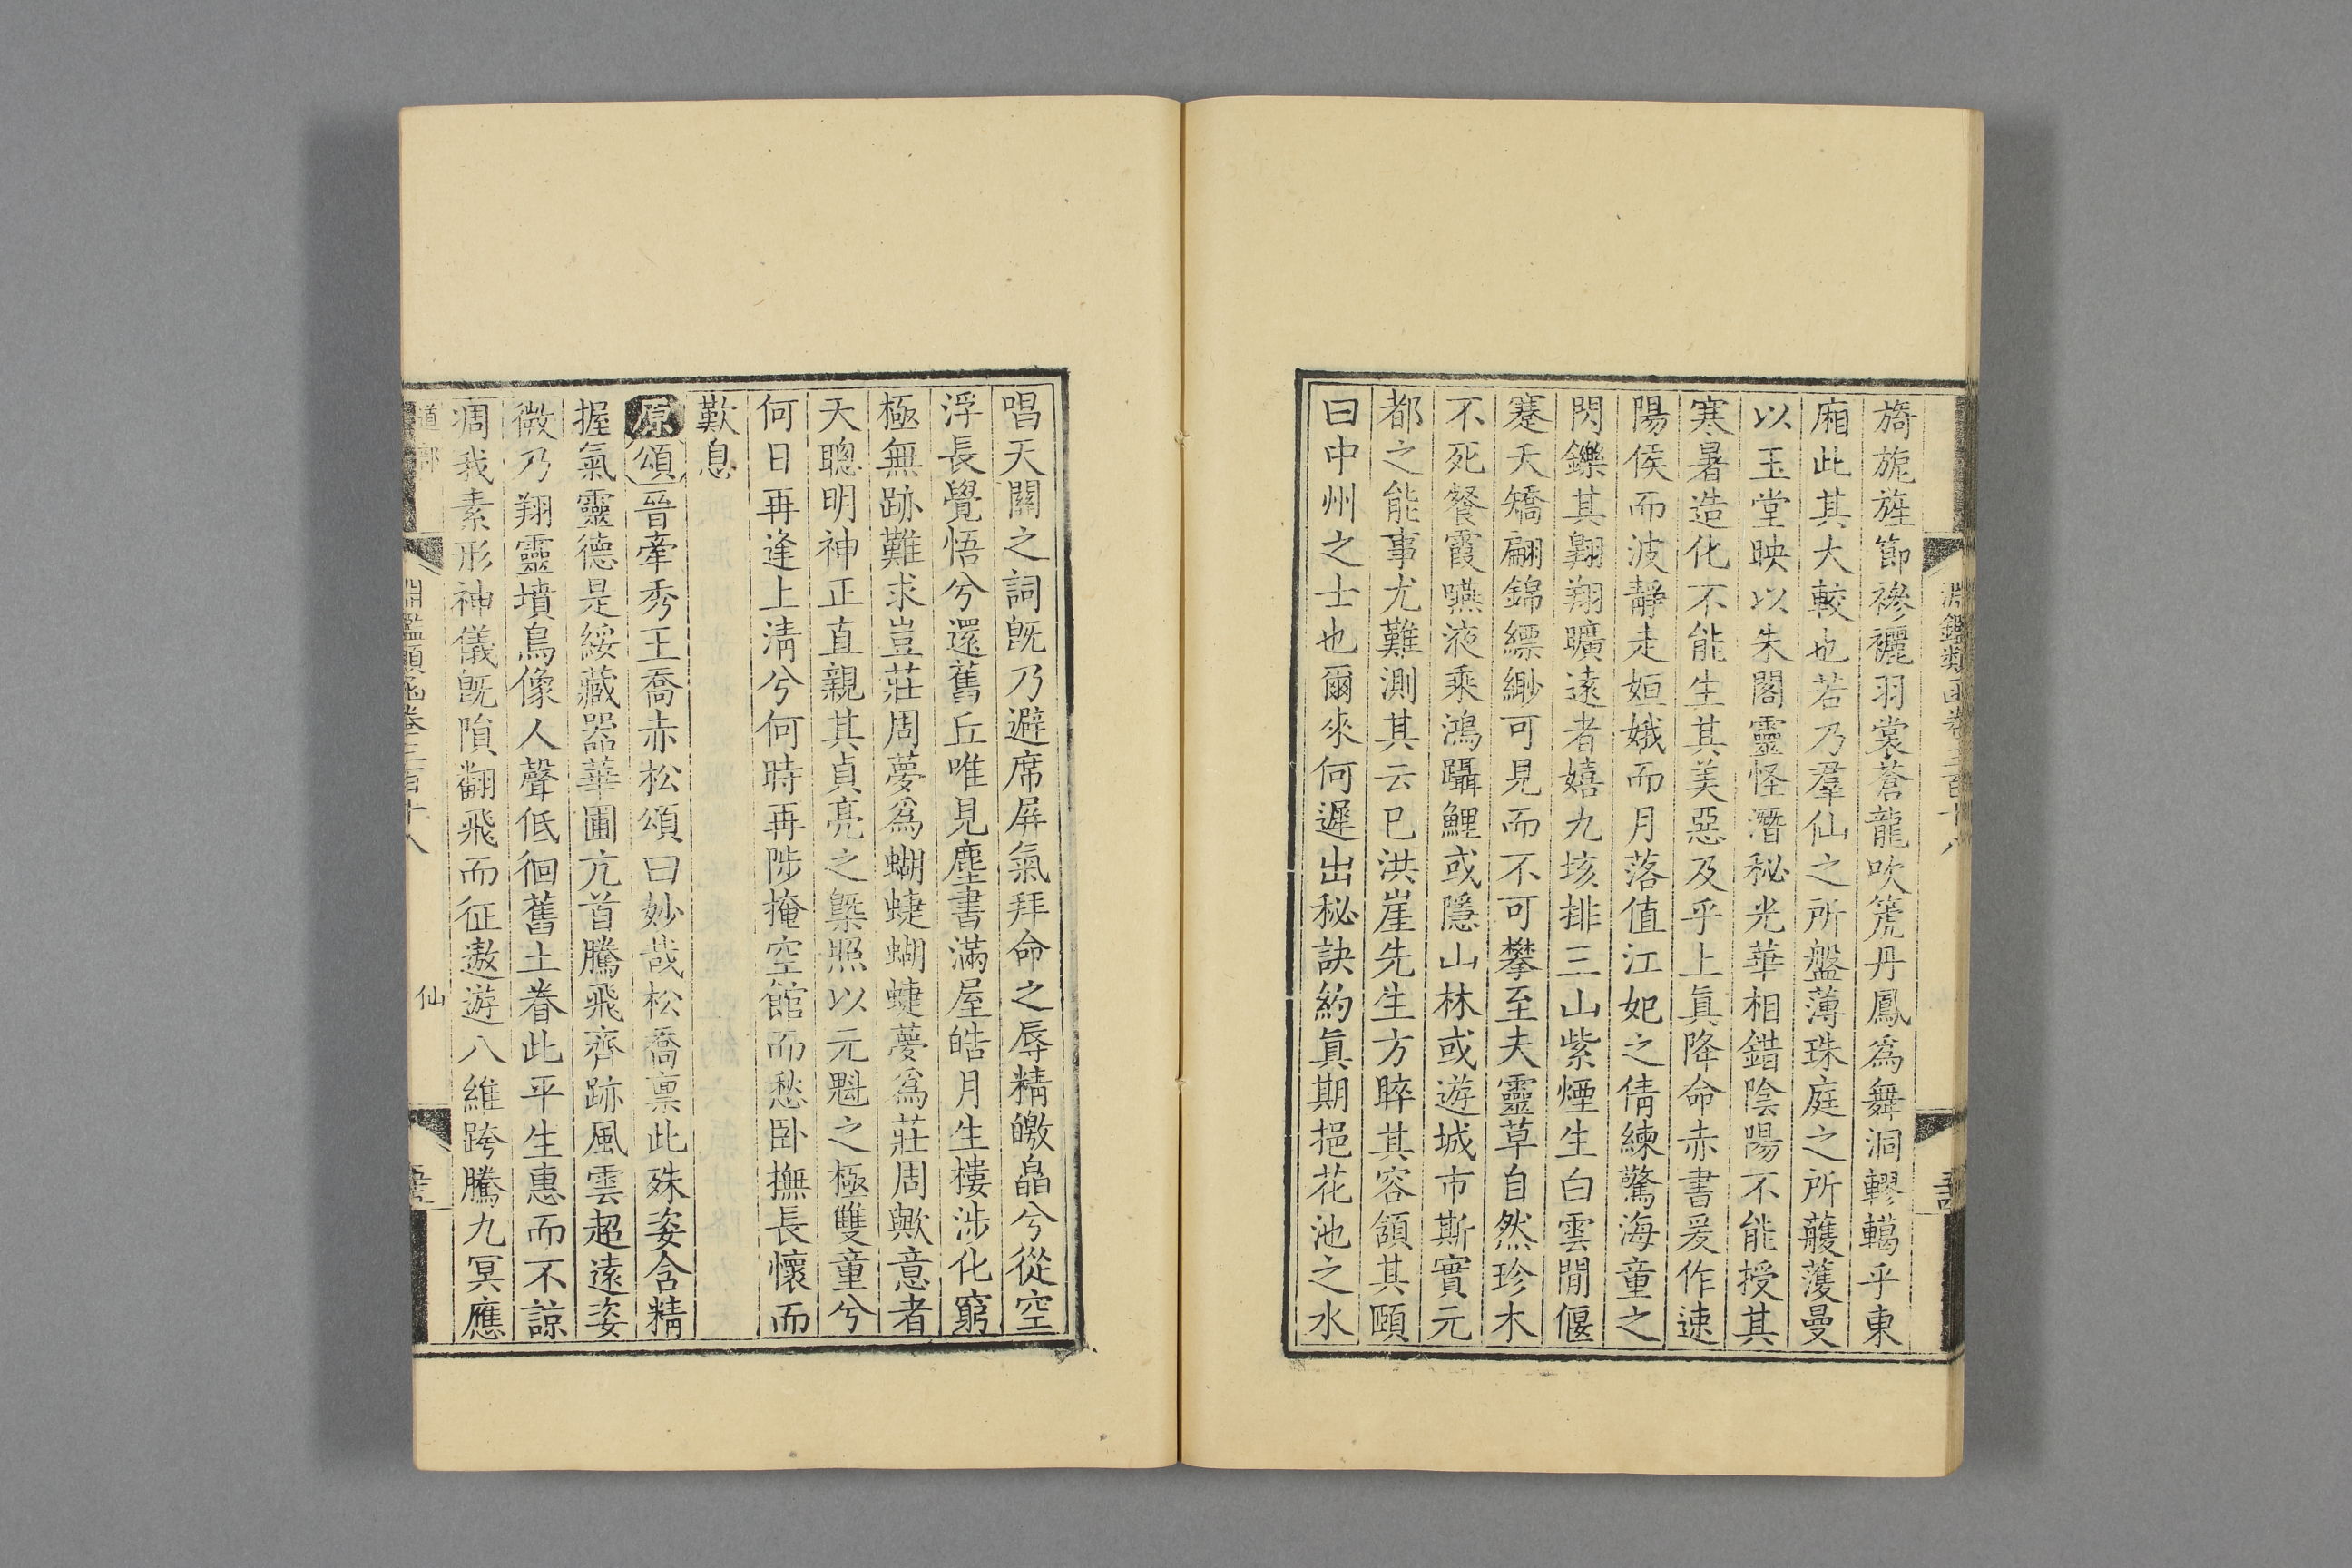 旖旎旌節襂襹羽裳蒼龍吹箎丹鳳爲舞洞轇轕乎東
廂此其大較也若乃羣仙之所盤薄珠庭之所蒦曼
以玉堂映以朱閣靈怪潛秘光華相錯陰陽不能授其
寒暑造化不能生其美惡及乎上眞降命赤書爰作速
陽侯而波靜走姮娥而月落值江妃之倩練驚海童之
閃鑠其翺翔曠遠者嬉九垓排三山紫煙生白雲閒偃
蹇夭矯翩錦縹緲可見而不可攀至夫靈草自然珍木
不死餐霞嚥液乘鴻躡鯉或隱山林或遊城市斯實元
都之能事尤難測其云已洪崖先生方睟其容頷其頤
曰中州之士也爾來何遲出秘訣約眞期挹花池之水
唱天關之詞旣乃避席屏氣拜命之辱精皦皛兮從空
浮長覺悟兮還舊丘唯見塵書滿屋皓月生樓涉化窮
極無跡難求豈莊周夢爲蝴蜨蝴蜨夢爲莊周歟意者
天聰明神正直親其貞亮之槩照以元魁之極雙童兮
何日再逢上淸兮何時再陟掩空館而愁臥撫長懷而
歎息
原頌晉牽秀王喬赤松頌曰妙哉松喬禀此殊姿含精
握氣靈德是綏藏器華圃亢首騰飛齊跡風雲超遠姿
微乃翔靈墳鳥像人聲低徊舊土眷此平生惠而不諒
凋我素形神儀旣隕翻飛而征遨遊八維跨騰九冥應
道部 淵鑑類函卷三百十八 仙